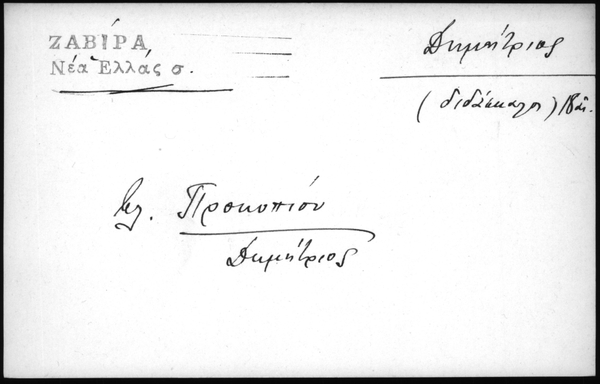 ΖΑΒΙΡΑ
Νέα Ἑλλάς σ.
Δημήτριος
(διδάσκαλος) 18 αἰ.
βλ. Προκοπίου
Δημήτριος